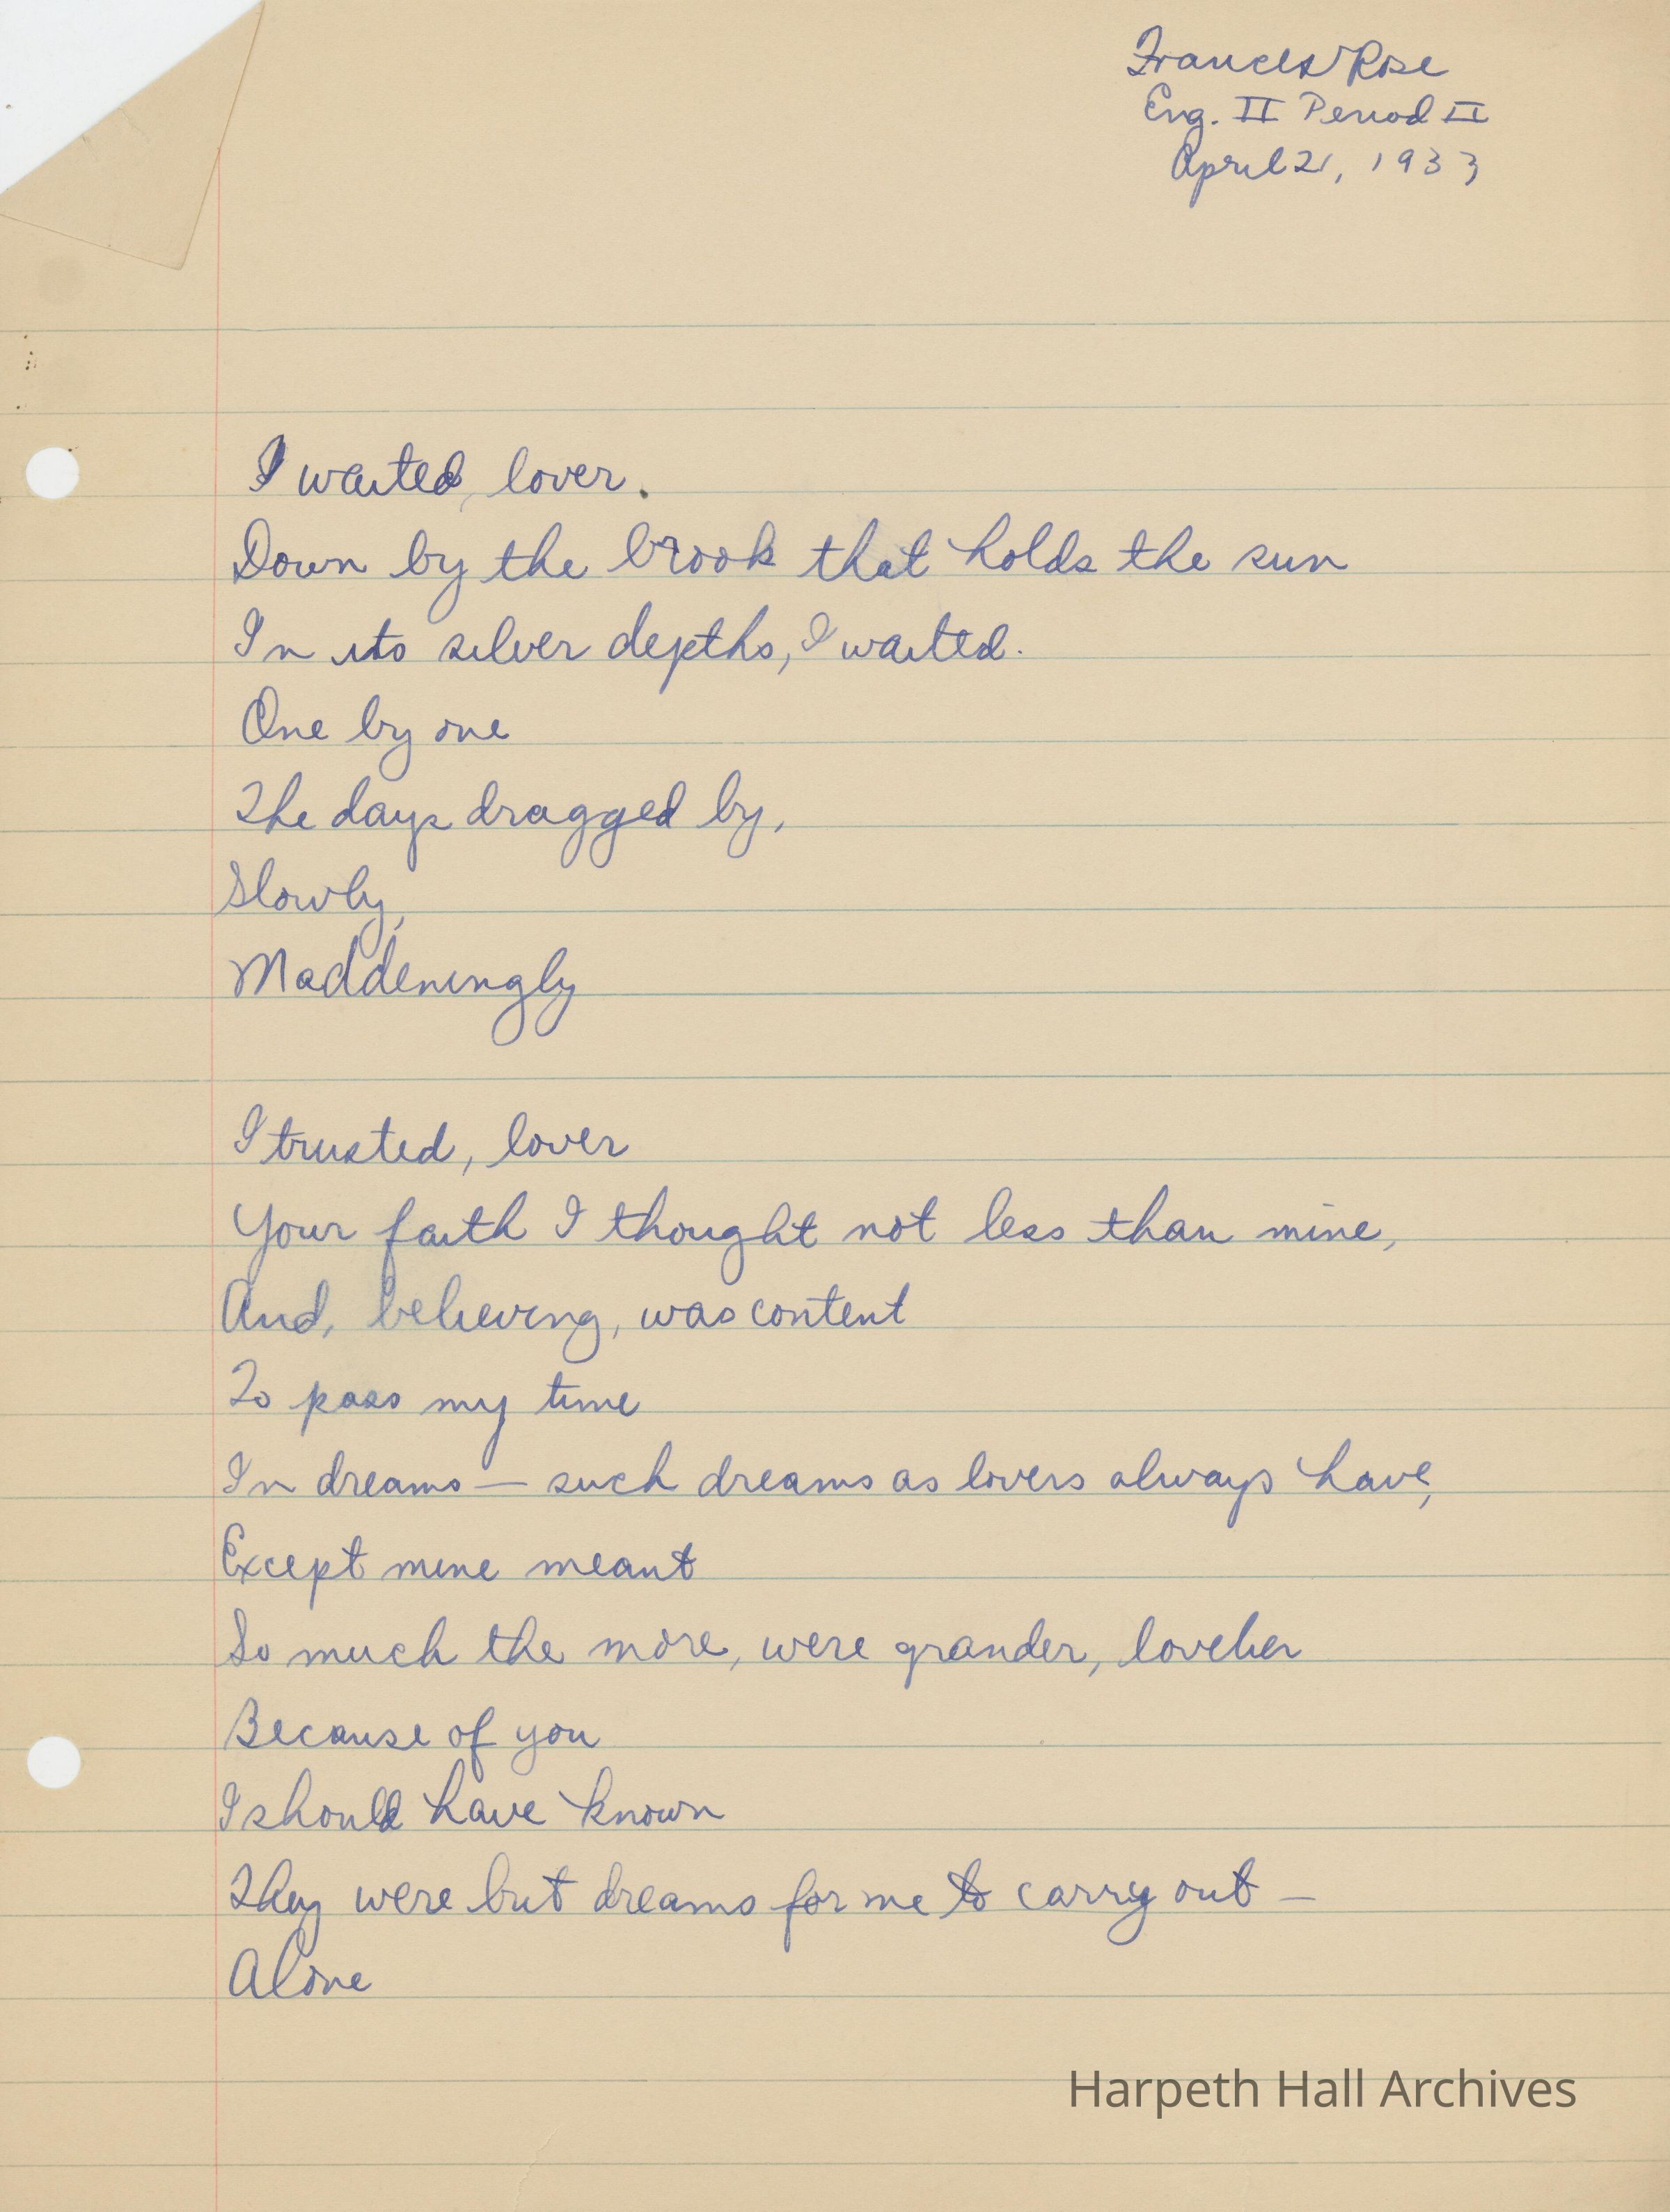 Frances Rose
Eng. II Period II
April 21, 1933
I waited, lover.
Down by the brook that holds the sun
In its silver depths, I waited.
One by one
The days dragged by,
Slowly,
Maddeningly
I trusted, lover
Your faith I thought not less than mine,
And, believing, was content
To pass my time
In dreams — such dreams as lovers always have,
Except mine meant
So much the more, were grander, lovelier
Because of you
I should have known
They were but dreams for me to carry out —
Alone
Harpeth Hall Archives